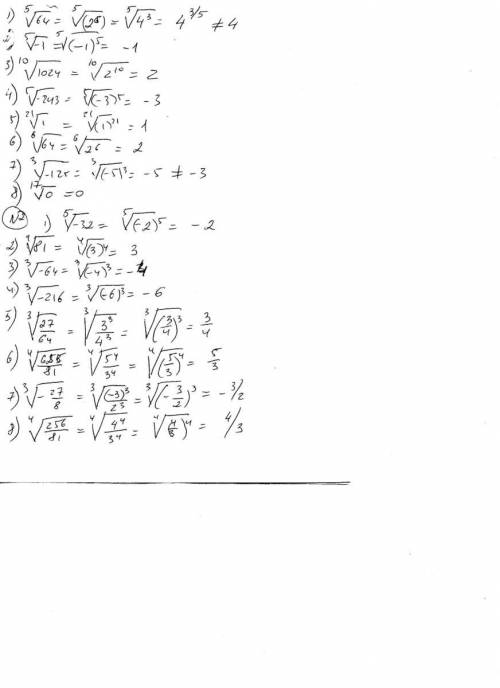 1) ⁵√64 = ⁵√(2⁶) = ⁵√4³ = 4^(3/5) ≠ 4
2) ⁵√-1 = ⁵√(-1)⁵ = -1
3) ¹⁰√1024 = ¹⁰√2¹⁰ = 2
4) ⁵√-243 = ⁵√(-3)⁵ = -3
5) ²¹√1 = ²¹√(1)²¹ = 1
6) ⁶√64 = ⁶√2⁶ = 2
7) ³√-125 = ³√(-5)³ = -5 ≠ -3
8) ¹⁷√0 = 0
N2 1) ⁵√-32 = ⁵√(-2)⁵ = -2
2) ⁴√81 = ⁴√(3)⁴ = 3
3) ³√-64 = ³√(-4)³ = -4
4) ³√-216 = ³√(-6)³ = -6
5) ³√27/64 = ³√3³/4³ = ³√(3/4)³ = 3/4
6) ⁴√625/81 = ⁴√5⁴/3⁴ = ⁴√(5/3)⁴ = 5/3
7) ³√-27/8 = ³√(-3)³/2³ = ³√(-3/2)³ = -3/2
8) ⁴√256/81 = ⁴√4⁴/3⁴ = ⁴√(4/3)⁴ = 4/3